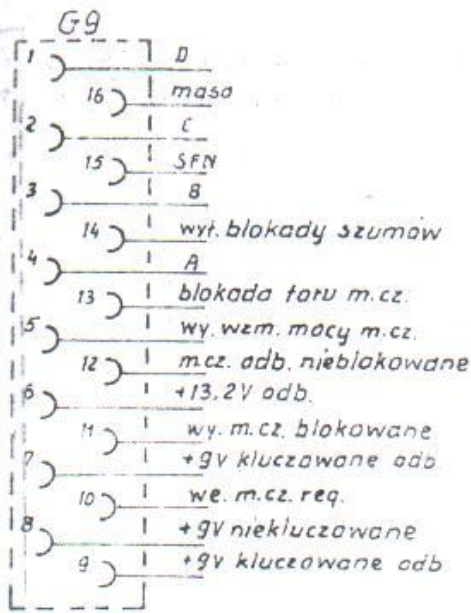 G9
1 D
16 masa
2 C
15 SFN
3 B
14 wył. blokady szumów
4 A
13 blokada toru m.cz.
5 wy. wzm. mocy m.cz.
12 m.cz. odb. nieblokowane
6 +13,2V odb.
11 wy. m.cz. blokowane
7 +9V kluczowane odb.
10 we. m.cz. reg.
8 +9V niekluczowane
9 +9V kluczowane odb.